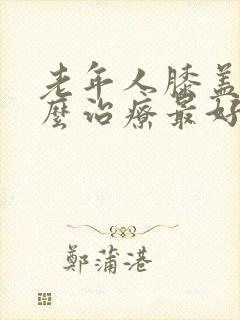 老年人膝盖
麼治療最好
鄭蒲港